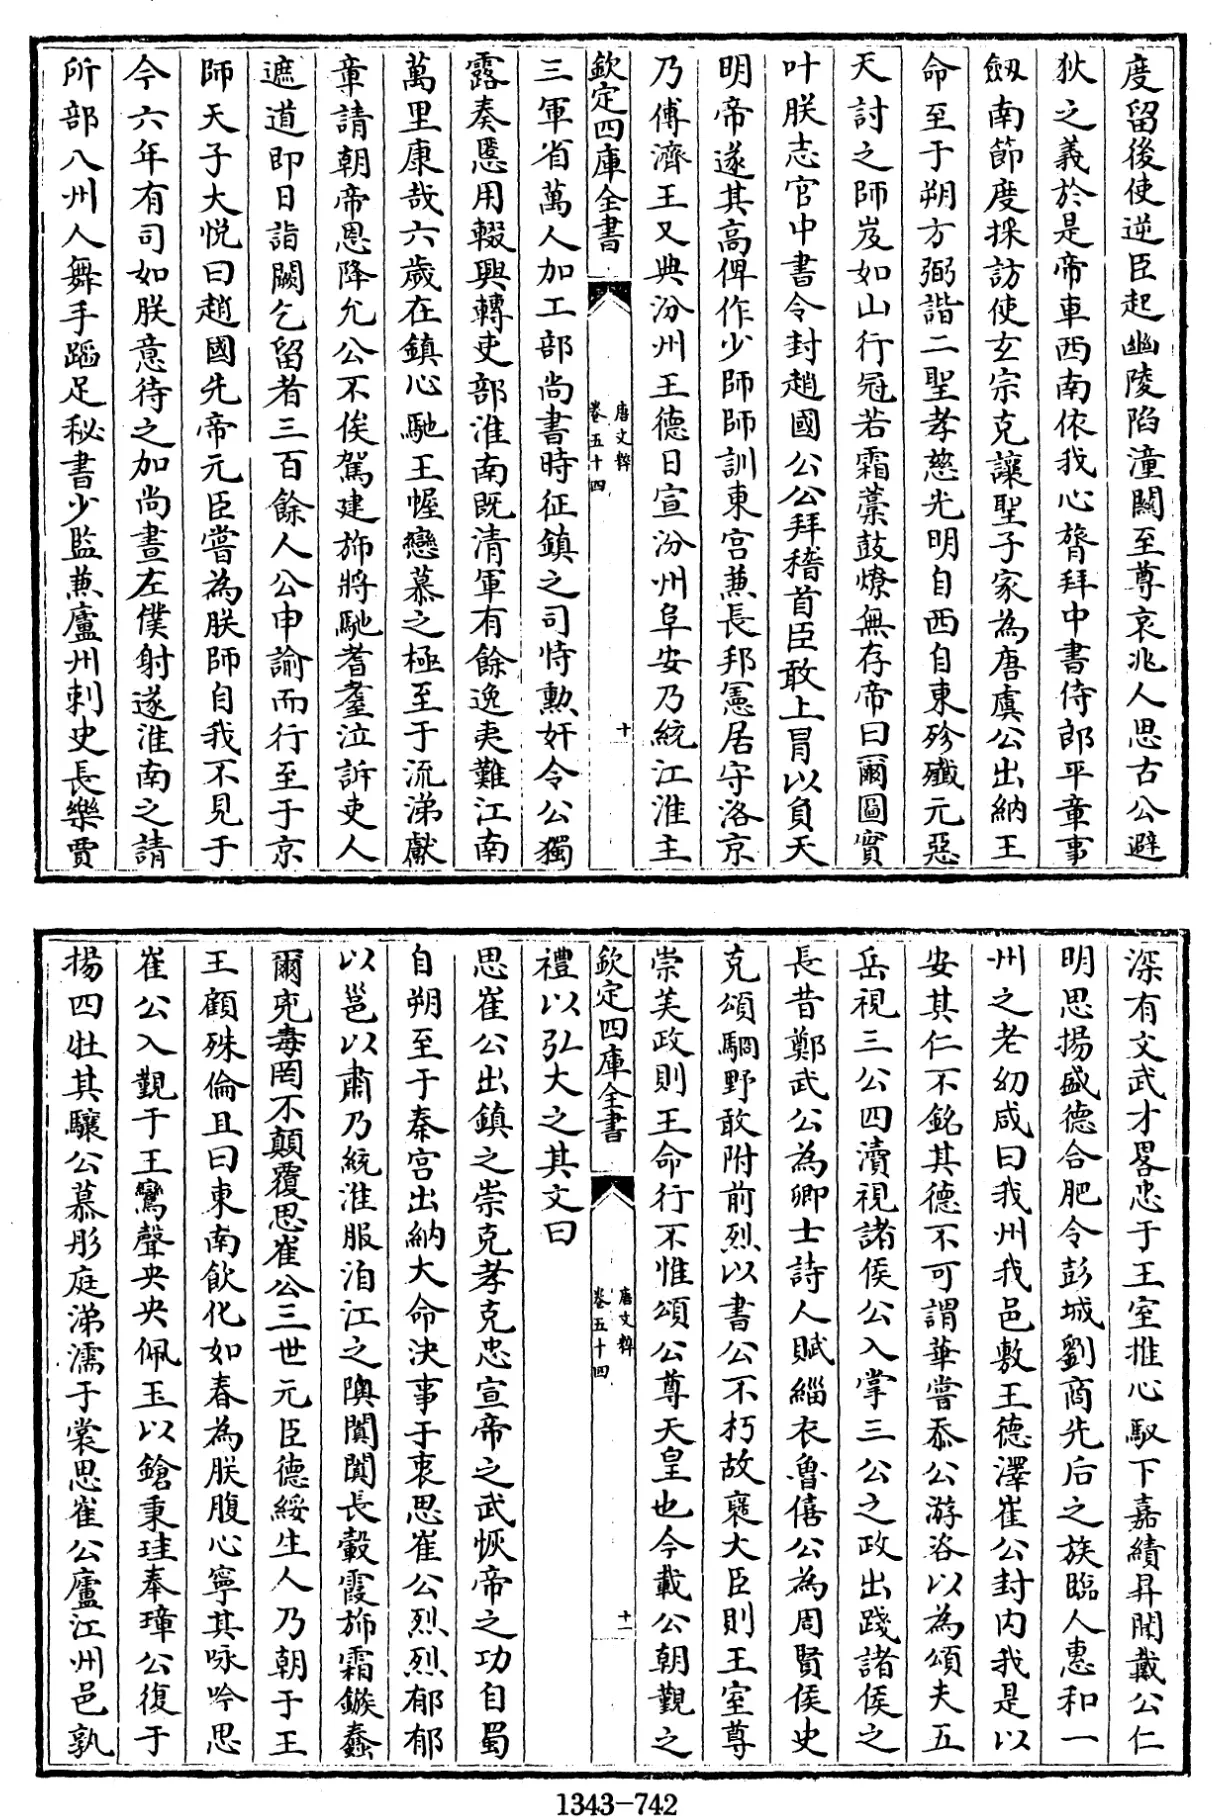 度留後使逆臣起幽陵陷潼關至尊哀兆人思古公避
狄之義於是帝車西南依我心膂拜中書侍郎平章事
劔南節度採訪使玄宗克讓聖子家為唐虞公出納王
命至于朔方弼諧二聖孝慈光明自西自東殄殲元惡
天討之師岌如山行冠若霜藁鼓燎無存帝曰爾圖實
叶朕志官中書令封趙國公公拜稽首臣敢上冒以負天
明帝遂其高俾作少師師訓東宮兼長邦憲居守洛京
乃傅濟王又典汾州王德日宣汾州阜安乃統江淮主
欽定四庫全書
唐文粹
卷五十四
十
三軍省萬人加工部尚書時征鎮之司恃勲奸令公獨
露奏慝用輟興轉吏部淮南既清軍有餘逸夷難江南
萬里康哉六歲在鎮心馳王幄戀慕之極至于流涕獻
章請朝帝恩降允公不俟駕建斾將馳耆耋泣訴吏人
遮道即日詣闕乞留者三百餘人公申諭而行至于京
師天子大悅曰趙國先帝元臣嘗為朕師自我不見于
今六年有司如朕意待之加尚書左僕射遂淮南之請
所部八州人舞手蹈足秘書少監兼廬州刺史長樂賈
深有文武才畧忠于王室推心馭下嘉績昇聞戴公仁
明思揚盛德合肥令彭城劉商先后之族臨人惠和一
州之老幼咸曰我州我邑敷王德澤崔公封内我是以
安其仁不銘其德不可謂華嘗忝公游咨以為頌夫五
岳視三公四瀆視諸侯公入掌三公之政出踐諸侯之
長昔鄭武公為卿士詩人賦緇衣魯僖公為周賢侯史
克頌駉野敢附前烈以書公不朽故襃大臣則王室尊
崇美政則王命行不惟頌公尊天皇也今載公朝覲之
欽定四庫全書
唐文粹
卷五十四
十一
禮以弘大之其文曰
思崔公出鎮之崇克孝克忠宣帝之武恢帝之功自蜀
自朔至于秦宫出納大命決事于衷思崔公烈烈郁郁
以邕以肅乃統淮服洎江之隩闐闐長轂霞斾霜鏃蠢
爾兇毒罔不顛覆思崔公三世元臣德綏生人乃朝于王
王顧殊倫且曰東南飲化如春為朕腹心寧其咏吟思
崔公入覲于王鸞聲央央佩玉以鎗秉珪奉璋公復于
揚四牡其驤公慕彤庭涕濡于裳思崔公廬江州邑孰
1343-742